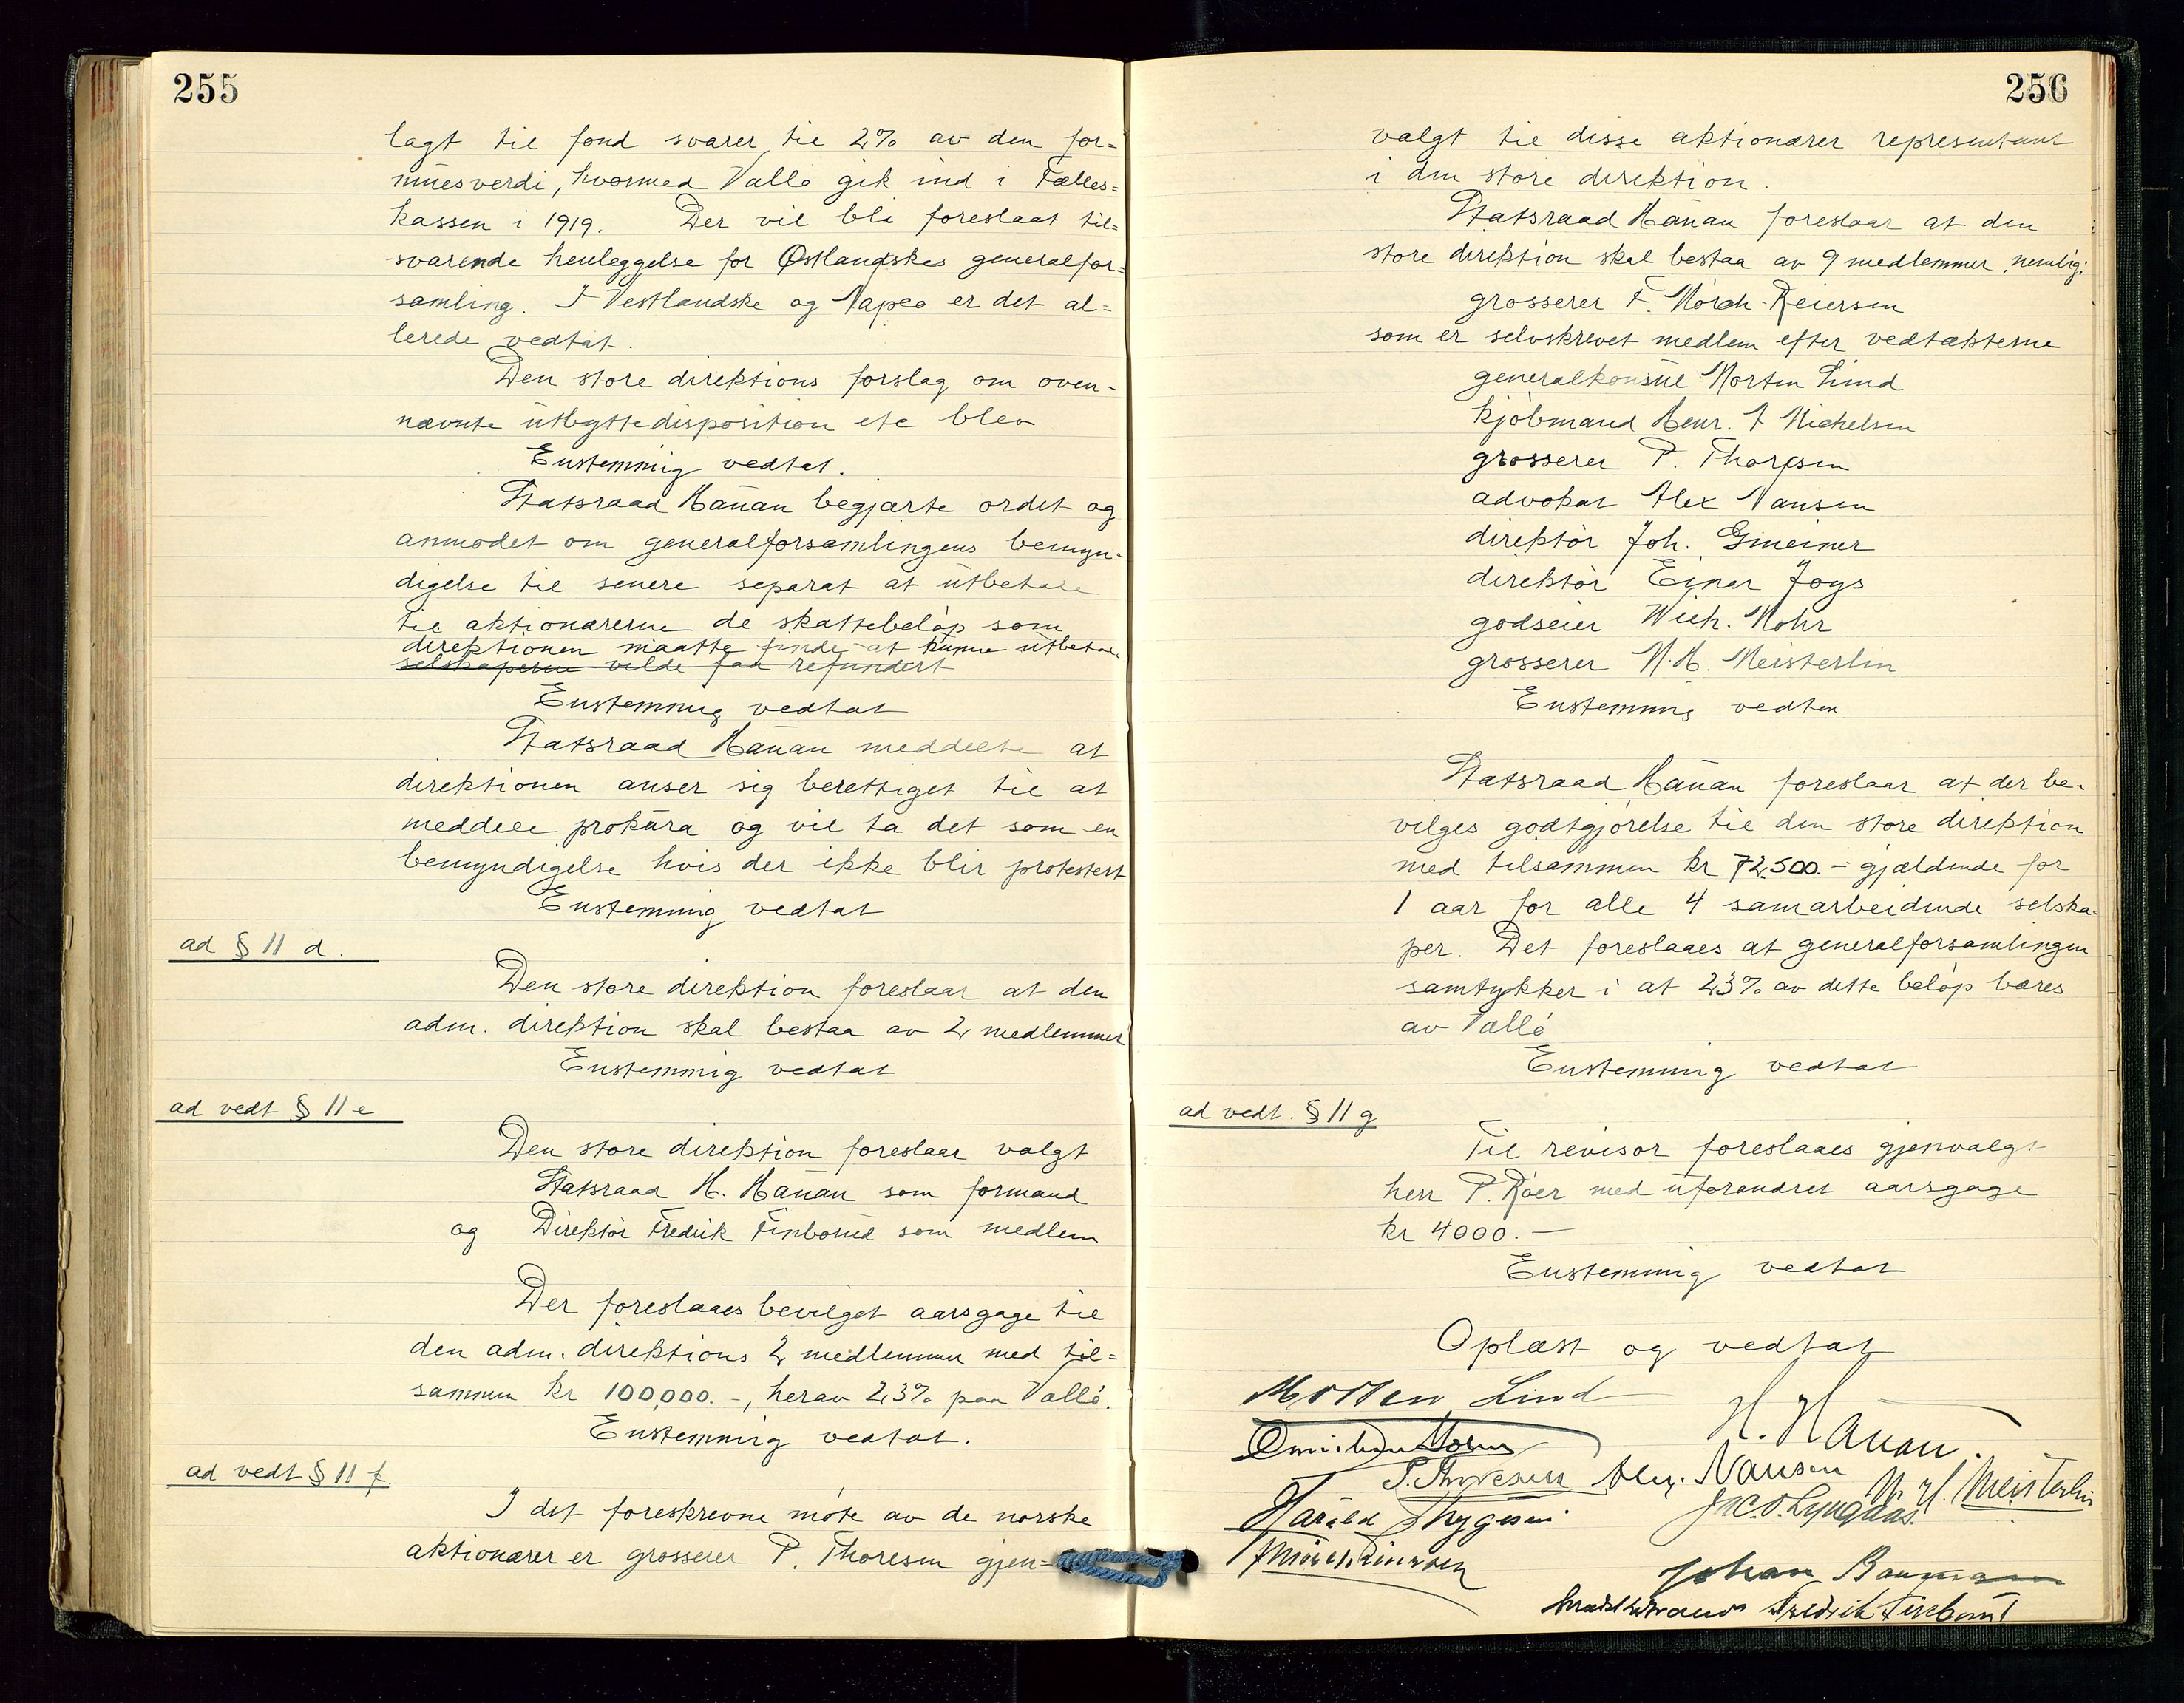 255
lagt til fond svarer til 2% av den for-
muesverdi, hvormed Vallø gik ind i Fælles-
kassen i 1919. Der vil bli foreslaat til-
svarende henleggelse for Østlandskes generalfor-
samling. I Vestlandske og Napeo er det al-
lerede vedtat.
Den store direktions forslag om oven-
nævnte utbyttedisposition etc blev
Enstemmig vedtat.
Statsraad Hauan begjærte ordet og
anmodet om generalforsamlingens bemyn-
digelse til senere separat at utbetale
til aktionærerne de skattebeløp som
direktionen maatte finde at kunne utbetale
selskaperne vilde faa refundert
Enstemmig vedtat
Statsraad Hauan meddelte at
direktionen anser sig berettiget til at
meddele prokura og vil ta det som en
bemyndigelse hvis der ikke blir protestert
Enstemmig vedtat
ad § 11 d.
Den store direktion foreslaar at den
adm. direktion skal bestaa av 2 medlemmer
Enstemmig vedtat
ad vedt § 11 e
Den store direktion foreslaar valgt
Statsraad H. Hauan som formand
og Direktør Fredrik Finborud som medlem
Der foreslaaes bevilget aarsgage til
den adm. direktions 2 medlemmer med til-
sammen kr 100,000.-, herav 23% paa Vallø.
Enstemmig vedtat.
ad vedt § 11 f.
I det foreskrevne møte av de norske
aktionærer er grosserer P. Thoresen gjen-
256
valgt til disse aktionærer representant
i den store direktion.
Statsraad Hauan foreslaar at den
store direktion skal bestaa av 9 medlemmer, nemlig:
grosserer F. Mørch-Reiersen
som er selvskrevet medlem efter vedtækterne
generalkonsul Morten Lind
kjøbmand Henr. J Michelsen
grosserer P. Thoresen
advokat Alex Nansen
direktør Joh. Gmeiner
direktør Einar Joys
godseier Wilh. Mohr
grosserer N. H. Meisterlin
Enstemmig vedtat
Statsraad Hauan foreslaar at der be-
vilges godtgjørelse til den store direktion
med tilsammen kr 72,500.- gjældende for
1 aar for alle 4 samarbeidende selska-
per. Det foreslaaes at generalforsamlingen
samtykker i at 23% av dette beløp bæres
av Vallø
Enstemmig vedtat
ad vedt. § 11 g
Til revisor foreslaaes gjenvalgt
herr P. Røer med uforandret aarsgage
kr 4000.-
Enstemmig vedtat
Oplæst og vedtat
Morten Lind
H. Hauan.
P. Thoresen Alex. Nansen N. H. Meisterlin
Harald Thygesen Jac. S. Lyngaas.
F Mørch Reiersen
Johan Baumann
Fredrik Finborud